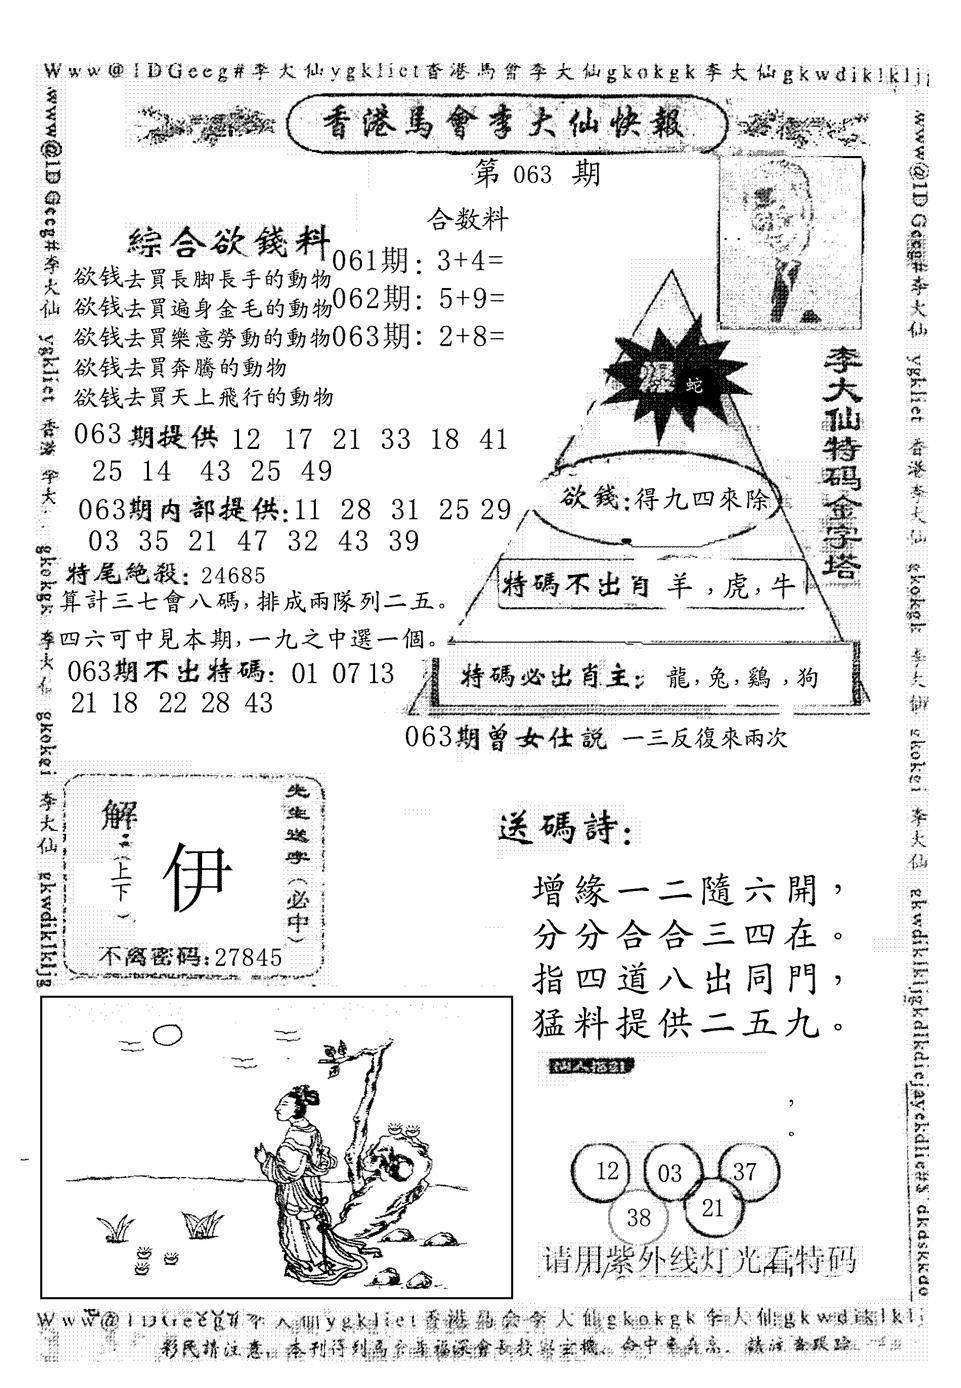 Www@1DGeeg#李大仙ygkliet香港馬會李大仙gkokgk李大仙gkwdiklkljg
香港馬會李大仙快報
第 063 期
合数料
綜合欲錢料
061期: 3+4=
062期: 5+9=
063期: 2+8=
欲钱去買長脚長手的動物
欲钱去買遍身金毛的動物
欲钱去買樂意勞動的動物
欲钱去買奔騰的動物
欲钱去買天上飛行的動物
063期提供 12 17 21 33 18 41
25 14 43 25 49
063期内部提供:11 28 31 25 29
03 35 21 47 32 43 39
特尾絶殺: 24685
算計三七會八碼,排成兩隊列二五。
四六可中見本期,一九之中選一個。
063期不出特碼: 01 07 13
21 18 22 28 43
李大仙特码金字塔
爆 蛇
欲錢:得九四來除
特碼不出肖 羊,虎,牛
特碼必出肖主: 龍,兔,鷄,狗
063期曾女仕説 一三反復來兩次
先生送字(必中)
解:(上下)
伊
不离密码:27845
送碼詩:
增緣一二隨六開,
分分合合三四在。
指四道八出同門,
猛料提供二五九。
,
。
12 03 37
38 21
请用紫外线灯光看特码
www@1DGeeg#李大仙 ygkliet 香港 李大 gkokgk 李大仙 gkokei 李大仙 gkwdiklkljg
www@1DGeeg#李大仙 ygkliet 香港李大仙 gkokgk 李大仙 gkokei 李大仙 gkwdiklkljgkdlkdiejayekdlie#$ dkdskkdo
Www@1DGeeg#李大仙ygkliet香港馬会李大仙gkokgk李大仙gkwdiklklj
彩民請注意,本刊得到馬